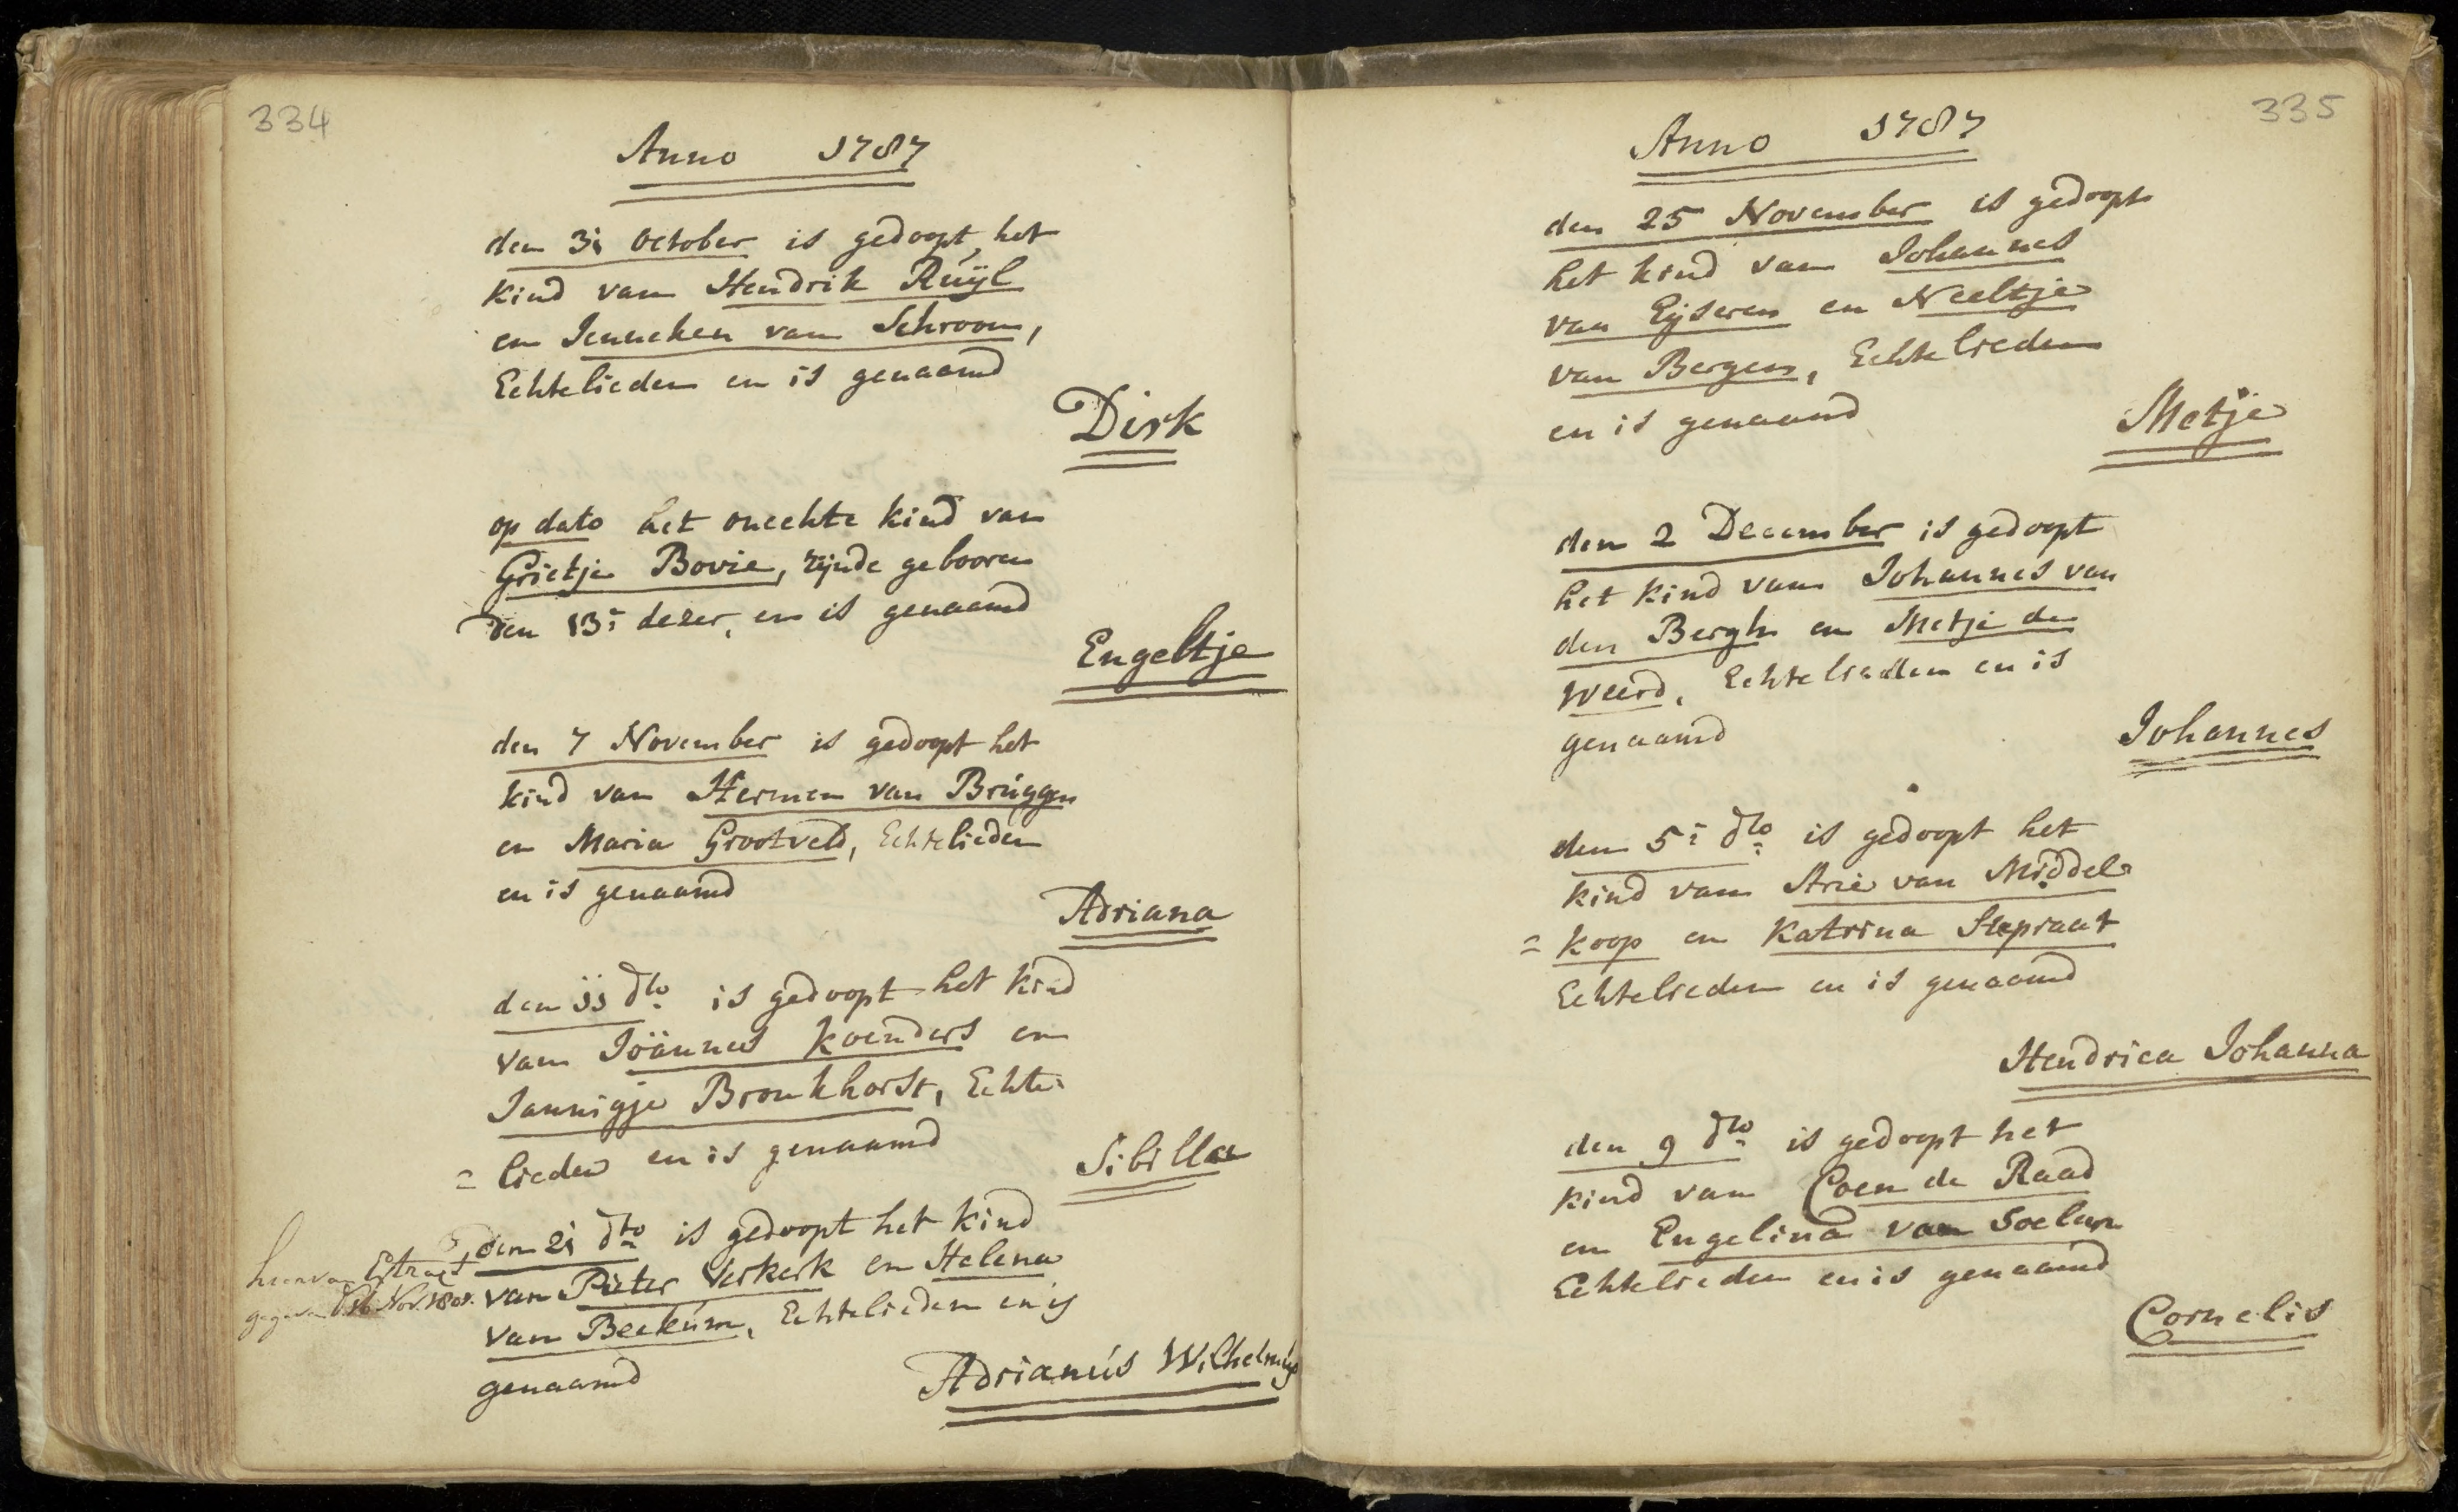 334
Anno 1787
den 31 October is gedoopt het
kind van Hendrik Ruÿl
en Jenneken van Schroom,
Echtelieden en is genaamd
Dirk
op dato het onechte kind van
Grietje Bovie, zijnde gebooren
den 13: dezer, en is genaamd
Engeltje
den 7 November is gedoopt het
kind van Hermen van Brúggen
en Maria Grootveld, Echtelieden
en is genaamd
Adriana
den 11 dto is gedoopt het kind
van Joännes Koenders en
Jannigje Bronkhorst, Echte
= lieden en is genaamd
Sibilla
den 21 dto is gedoopt het kind
hiervan Extract
van Pieter Verkerk en Helena
gegeven Nov. 1808.
van Beekúm, Echtelieden en is
genaamd
Adrianús Wilhelmús
335
Anno 1787
den 25 November is gedoopt
het kind van Johannes
van Eijseren en Neeltje
van Bergen, Echtelieden
en is genaamd
Metje
den 2 December is gedoopt
het kind van Johannes van
den Bergh en Metje de
Weerd, Echtelieden en is
genaamd
Johannes
den 5: dto is gedoopt het
kind van Arie van Middel
= koop en Katrina Stepraat
Echtelieden en is genaamd
Hendrica Johanna
den 9 dto is gedoopt het
kind van Coen de Raad
en Engelina van Soelen
Echtelieden en is genaamd
Cornelis